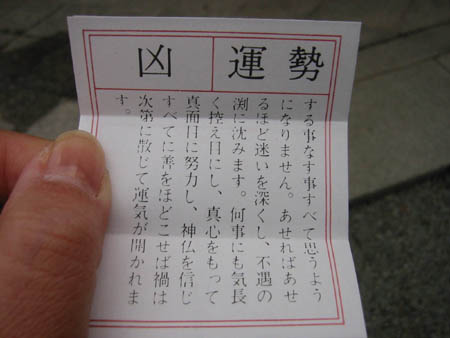 運勢
凶
する事なす事すべて思うよう
になりません。あせればあせ
るほど迷いを深くし、不遇の
渕に沈みます。何事にも気長
く控え目にし、真心をもって
真面目に努力し、神仏を信じ
すべてに善をほどこせば禍は
次第に散じて運気が開かれま
す。